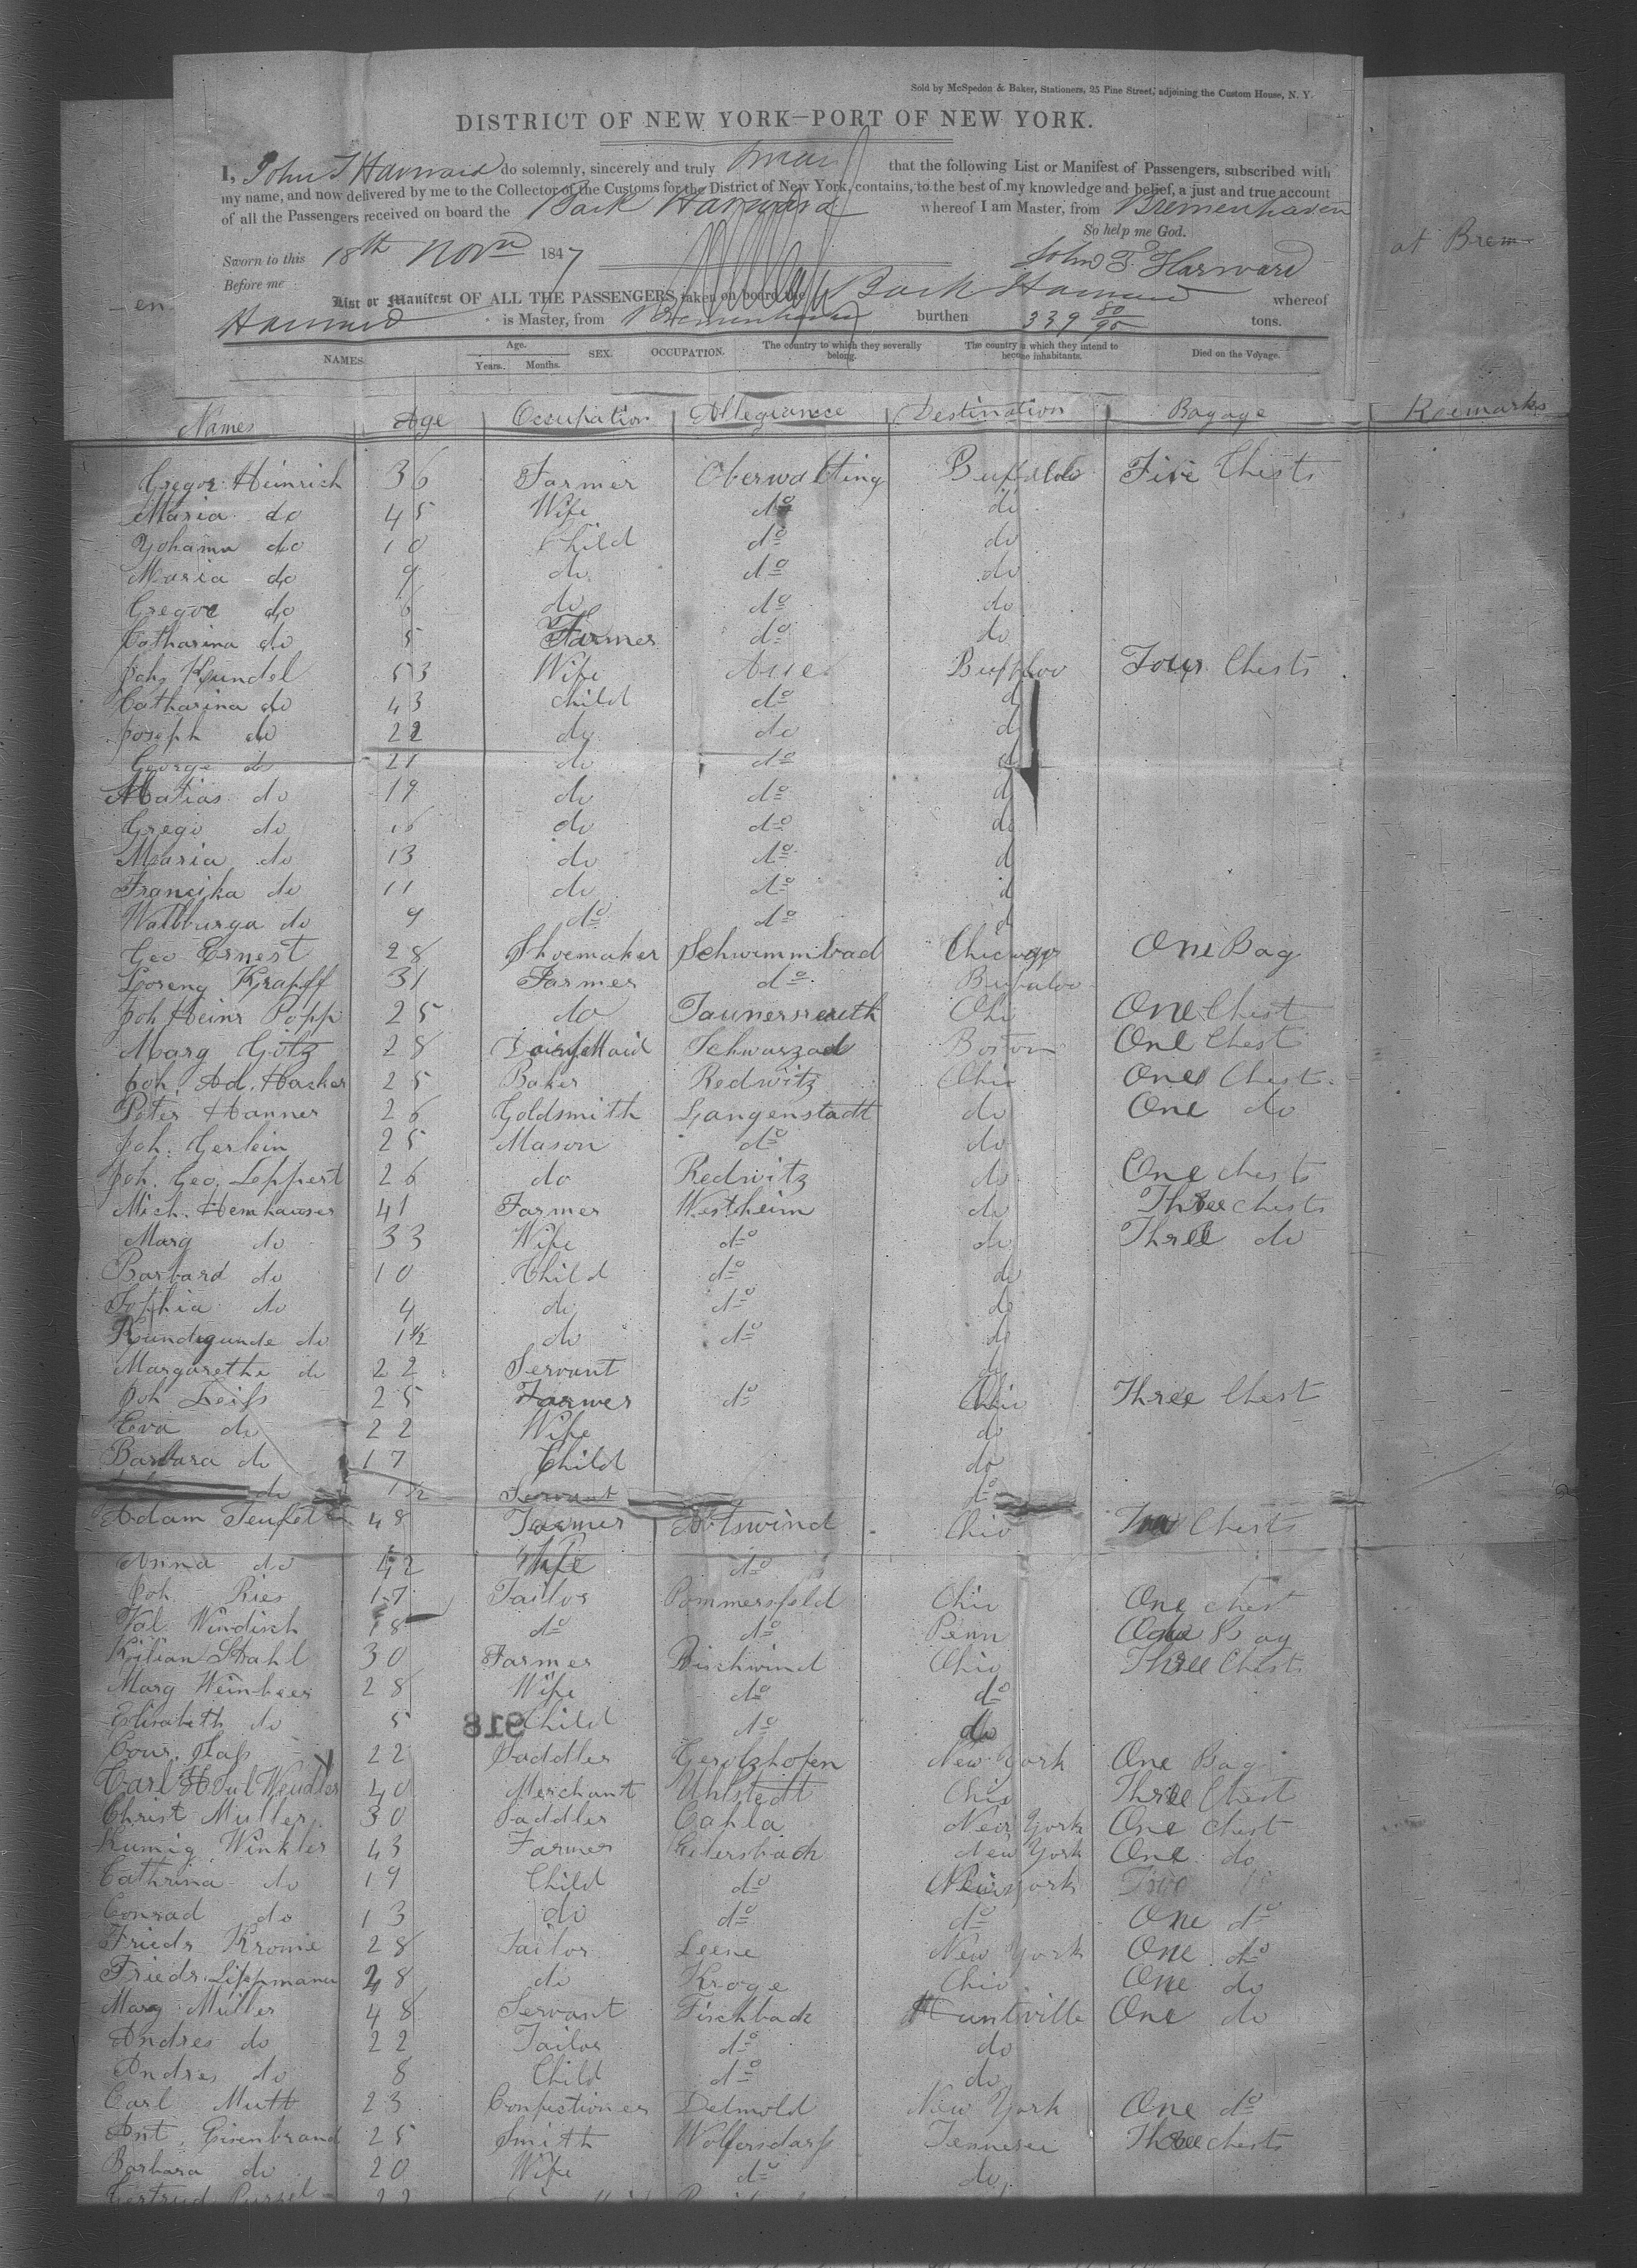 Sold by McSpedon & Baker, Stationers, 25 Pine Street, adjoining the Custom House, N. Y.
DISTRICT OF NEW YORK—PORT OF NEW YORK.
I, John T Harward do solemnly, sincerely and truly swear that the following List or Manifest of Passengers, subscribed with
my name, and now delivered by me to the Collector of the Customs for the District of New York, contains, to the best of my knowledge and belief, a just and true account
of all the Passengers received on board the Bark Harward whereof I am Master, from Bremenhaven
So help me God.
Sworn to this 18th Novr 1847 John T. Harward
Before me
at Brem
en
List or Manifest OF ALL THE PASSENGERS taken on board the Bark Harward whereof
Harward is Master, from Bremenhaven burthen 339 80/95 tons.
NAMES. Age. Years. Months. SEX. OCCUPATION. The country to which they severally belong. The country in which they intend to become inhabitants. Died on the Voyage.
Names Age Occupation Allegiance Destination Bagage Roemarks
Gregor Heinrich 36 Farmer Oberwalting Buffalo Five Chests
Maria do 45 Wife do do
Yohanna do 10 Child do do
Maria do 9 do do do
Gregor do 6 do do do
Catharina do 5 Farmer do do
Joh Kundel 53 Wife Aue Buffaloo Four Chests
Catharina do 43 child do d
Joseph do 22 do do d
George do 21 do do d
Matias do 19 do do d
Grego do 16 do do do
Maria do 13 do do d
Francika do 11 do do d
Wallburga do 9 do do d
Geo Ernest 28 Shoemaker Schwimmbad Chicago One Bag
Loreng Krapff 31 Farmer do Bufaloo
Joh Heinr Popp 25 do Taunersreuth Ohi One Chest
Marg Götz 28 DairyMaid Schwarzad Boston One Chest
Joh. Ad. Hacker 25 Baker Redwitz Ohio One Chest
Peter Hanner 26 Goldsmith Langenstadt do One do
Joh. Gerlein 25 Mason do do
Joh. Geo. Leppert 26 do Redwitz do One chests
Mich. Hemhauser 41 Farmer Westheim do Three chests
Marg do 33 Wife do do Three do
Barbard do 10 Child do do
Sophia do 4 do do do
Kundegunde do 1 1/2 do do do
Margarethe do 22 Servant
Joh Leiſs 25 Farmer do Ohio Three Chest
Eva do 22 Wife do
Barbara do 17 Child do
do 1/2 Servant do
Adam Teufel 48 Farmer Ohio Chests
Anna do 42 Wife do
Joh Ries 17 Tailor Pommersfeld Ohio One chest
Val. Windisch 18 do do Penn One Bag
Kilian Stahl 30 Farmer Bischwind Ohio Three Chests
Marg Weinbeer 28 Wife do do
Elisabeth do 5 Child do do
918
22 Saddler Gerolzhofen New York One Bag
Carl 40 Merchant Uhlstedt Ohio Three Chest
Christ Muller 30 Saddler Cahla New York One chest
Kunig Winkler 43 Farmer Eilersbach New York One do
Cathrina do 19 Child do New york Two
Conrad do 13 do do do One do
Friedr Krome 28 Tailor Leese New York One do
Friedr. Lippmann 28 do Kroge Ohio One do
Marg Müller 48 Servant Fischback Huntville One do
Andres do 22 Tailor do do
Andres do 8 Child do do
Carl Muth 23 Confectioner Detmold New York One do
Ant. Eisenbrand 25 Smith Wolfersdorf Tennesee Three chests
Barbara do 20 Wife do do
Gertrud 22